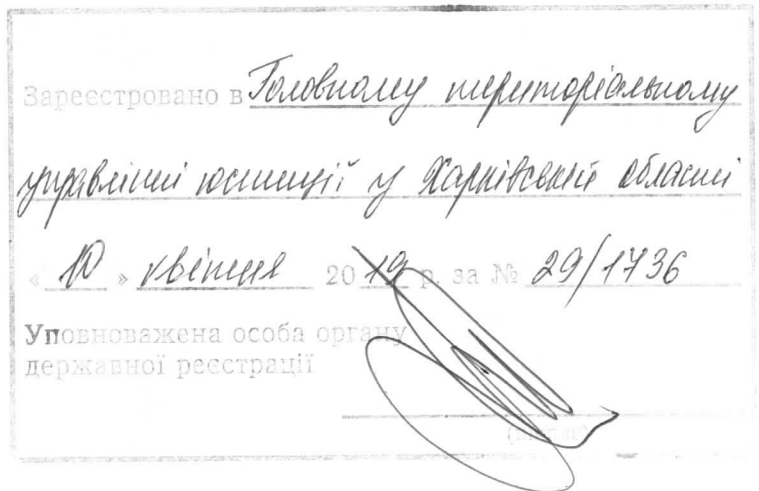 Зареєстровано в Головному територіальному
управлінні юстиції у Харківській області
« 10 » квітня 2019 р. за № 29/1736
Уповноважена особа органу
державної реєстрації
(підпис)